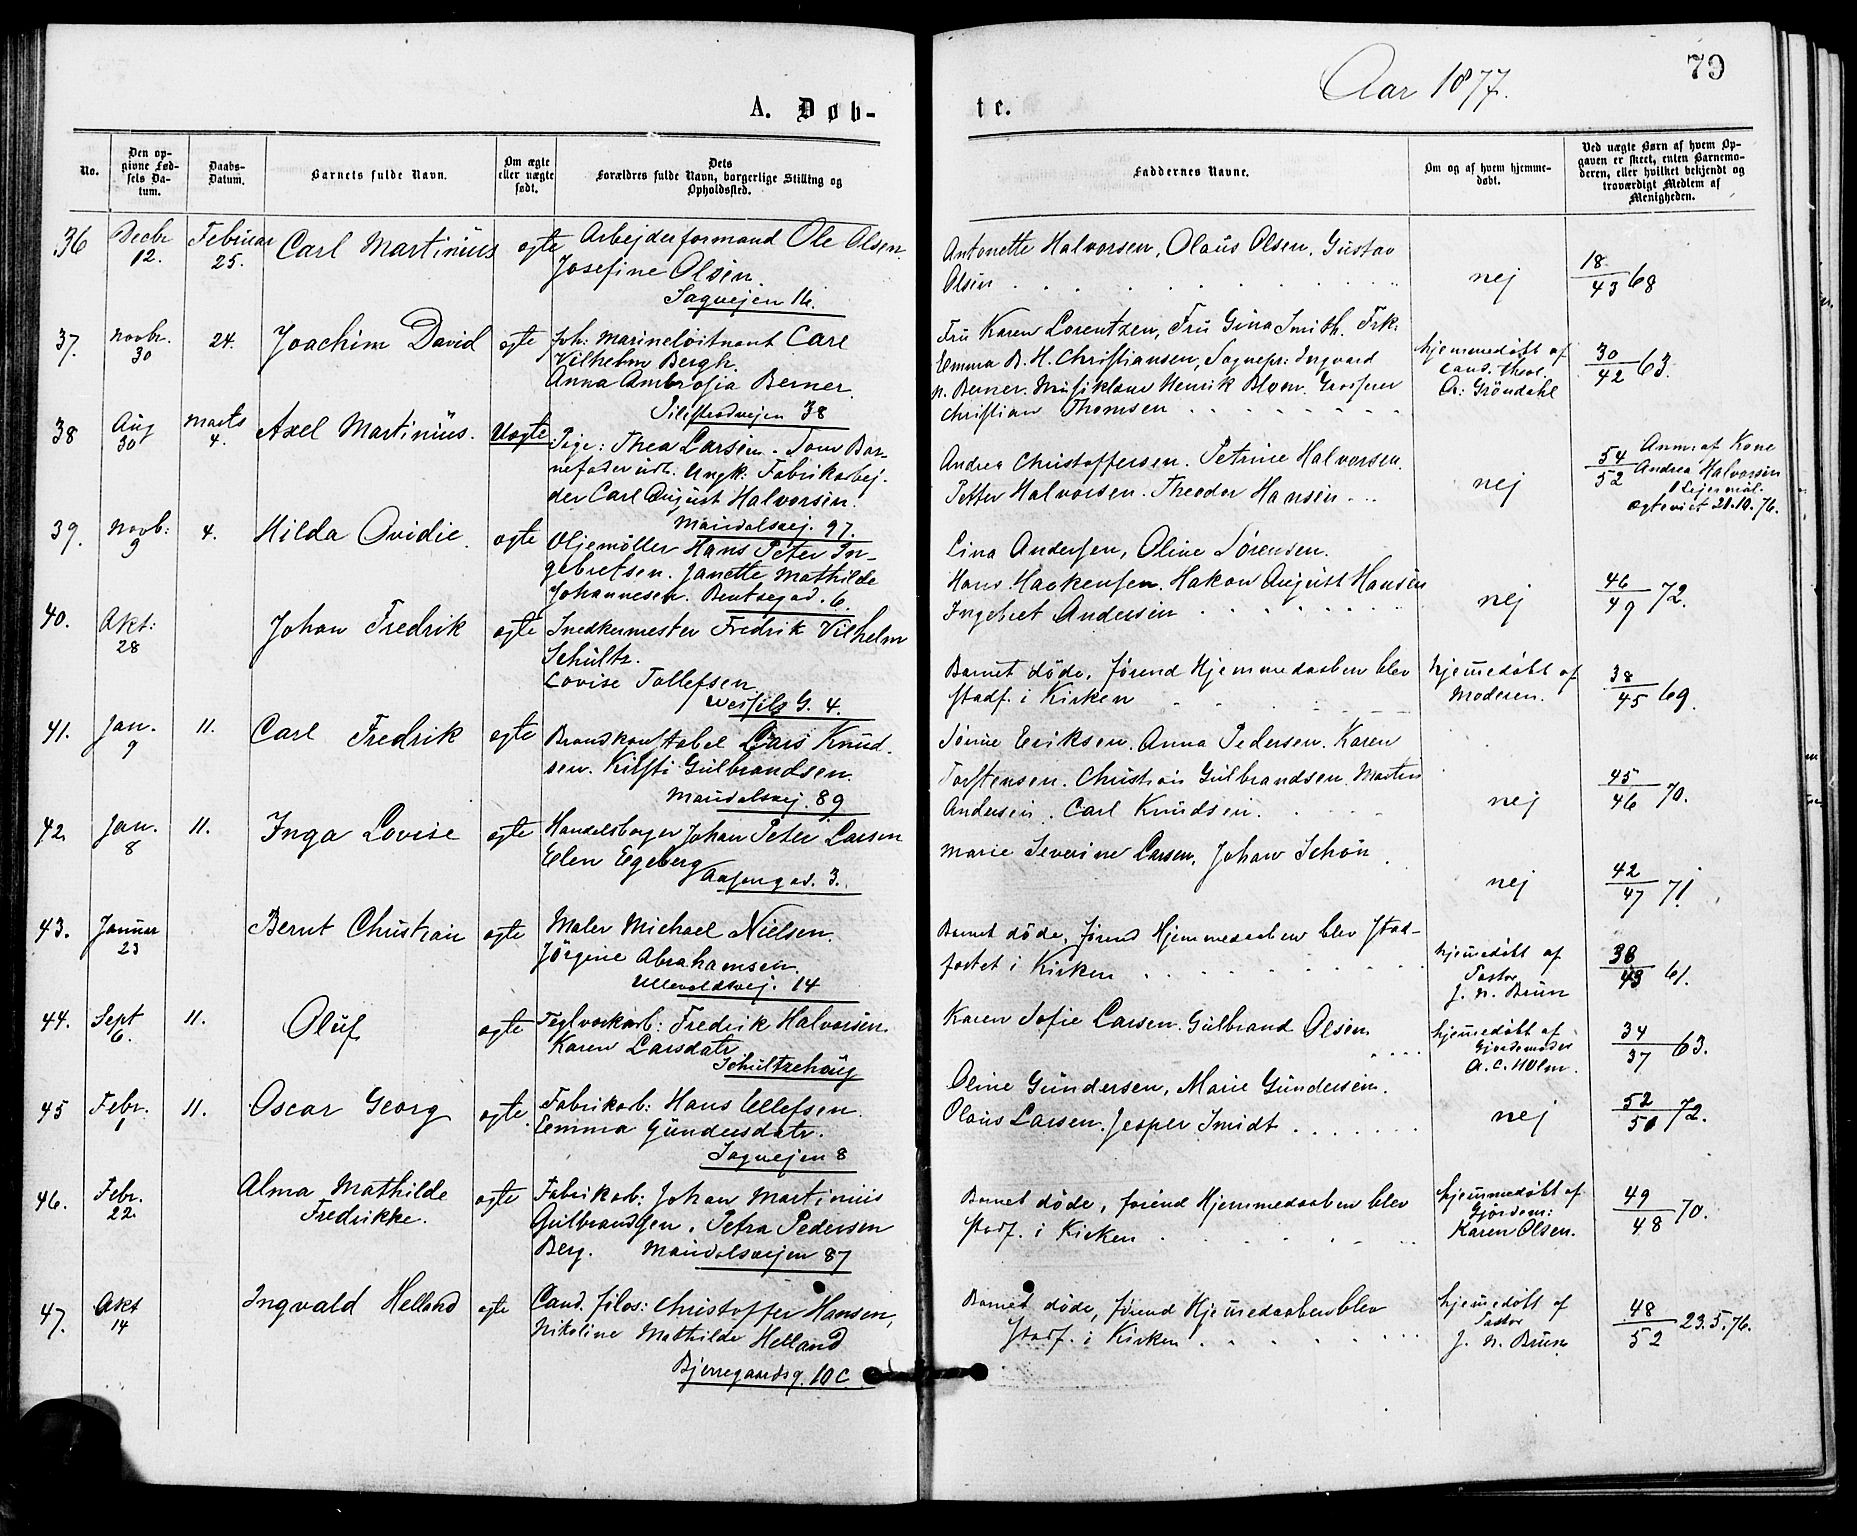 79
Aar 1877.
A. Døb-
te.
No.
Den op-
givne Fød-
sels Da-
tum.
Daabs-
Datum.
Barnets fulde Navn.
Om ægte
eller uægte
født.
Dets
Forældres fulde Navn, borgerlige Stilling og
Opholdssted.
Faddernes Navne.
Om og af hvem hjemme-
døbt.
Ved uægte Børn af hvem Op-
gaven er skeet, enten Barnemo-
deren, eller hvilket bekjendt og
troværdigt Medlem af
Menigheden.
36
Decbr
12.
Februar
25.
Carl Martinius
ægte
Arbejdsformand Ole Olsen.
Josefine Olsen.
Sagvejen 16.
Antonette Halvorsen, Olaus Olsen, Gustav
Olsen
nej
18
43 68
37.
Novbr.
30
24.
Joachim David
ægte
Marineløitnant Carl
Vilhelm Bergh.
Anna Ambrosia Berner.
Pilestredvejen 38
Fru Karen Lorentzen, Fru Gina Smith. Frk.
Emma B. H. Christiansen, Sognepr: Ingvard
N. Berner. Musiklærer Henrik Blom. Grosserer
Christian Thomsen
hjemmedøbt af
cand. theol.
A: Gröndahl
30
42 63.
38
Aug
30
Marts
4.
Axel Martinius.
Uægte
Pige: Thea Larsen. Som Bar-
nefader udl. Ungk: Fabrikarbej-
der Carl August Halvorsen.
Maridalsvej. 97.
Andrea Christoffersen. Petrine Halvorsen.
Petter Halvorsen. Theodor Hansen
nej
54
52
Anm. af Kone
Andrea Halvorsen
Lejermål.
ægteviet 21.10.76.
39.
Novb:
9
4.
Hilda Ovidie.
ægte
Oljemöller Hans Peter In-
gebretsen. Janette Mathilde
Johannesen. Bentsegad. 6.
Lina Andersen, Oline Sørensen.
Hans Haakensen. Hakon August Hansen
Ingebret Andersen
nej
46
49 72.
40.
Okt:
28
Johan Fredrik
ægte
Snedkermester Fredrik Vilhelm
Schultz.
Lovise Tollefsen
G. 4.
Barnet døde, førend Hjemmedaaben blev
stadf. i Kirken
hjemmedøbt af
Moderen.
38
45 69.
41.
Jan.
9
11.
Carl Fredrik
ægte
Brandkonstabel Lars Knud-
sen. Kisti Gulbrandsen.
Maridalsvej. 89
Eriksen. Anna Pedersen. Karen
Torstensen. Christian Gulbrandsen. Martin
Andersen. Carl Knudsen.
nej
45
46 70.
42.
Jan.
8
11.
Inga Lovise
ægte
Handelsborger Johan Peter Larsen
Elen Egeberg
Aasengad. 3.
Marie Severine Larsen, Johan Schön
nej
42
47 71.
43.
Januar
23
Bernt Christian
ægte
Maler Michael Nielsen.
Jörgine Abrahamsen
Ullevoldsvej. 14
Barnet døde, førend Hjemmedaaben blev stad-
fæstet i Kirken
hjemmedøbt af
Pastor
J. N. Brun
38
43 61.
44.
Sept
6.
11.
Oluf
ægte
Teglværkarb: Fredrik Halvorsen.
Karen Larsdatr
Schultzehaug
Karen Sofie Larsen. Gulbrand Olsen
hjemmedøbt af
Gjordemoder
A. C. Holm.
34
37 63.
45
Febr.
1
11.
Oscar Georg
ægte.
Fabrikarb: Hans Ellefsen.
Emma Gundersdatr.
Sagvejen 8
Oline Gundersen, Marie Gundersen.
Olaus Larsen. Jesper Smidt
nej
52
50 72.
46.
Febr.
22.
Alma Mathilde
Fredrikke.
ægte
Fabrikarb: Johan Martinius
Gulbrandsen. Petra Pedersen
Berg. Maridalsvejen 87
Barnet døde, førend Hjemmedaaben blev
stadf. i Kirken
hjemmedøbt af
Gjordem:
Karen Olsen.
49
48 70.
47.
Okt
14
Ingvald Helland
ægte
Cand. filos: Christoffer Hansen,
Nikoline Mathilde Helland
Bjerregaardsg. 10 C.
Barnet døde, førend Hjemmedaaben blev
stadf. i Kirken
hjemmedøbt af
Pastor
J. N. Brun
48
52 23.5.76.